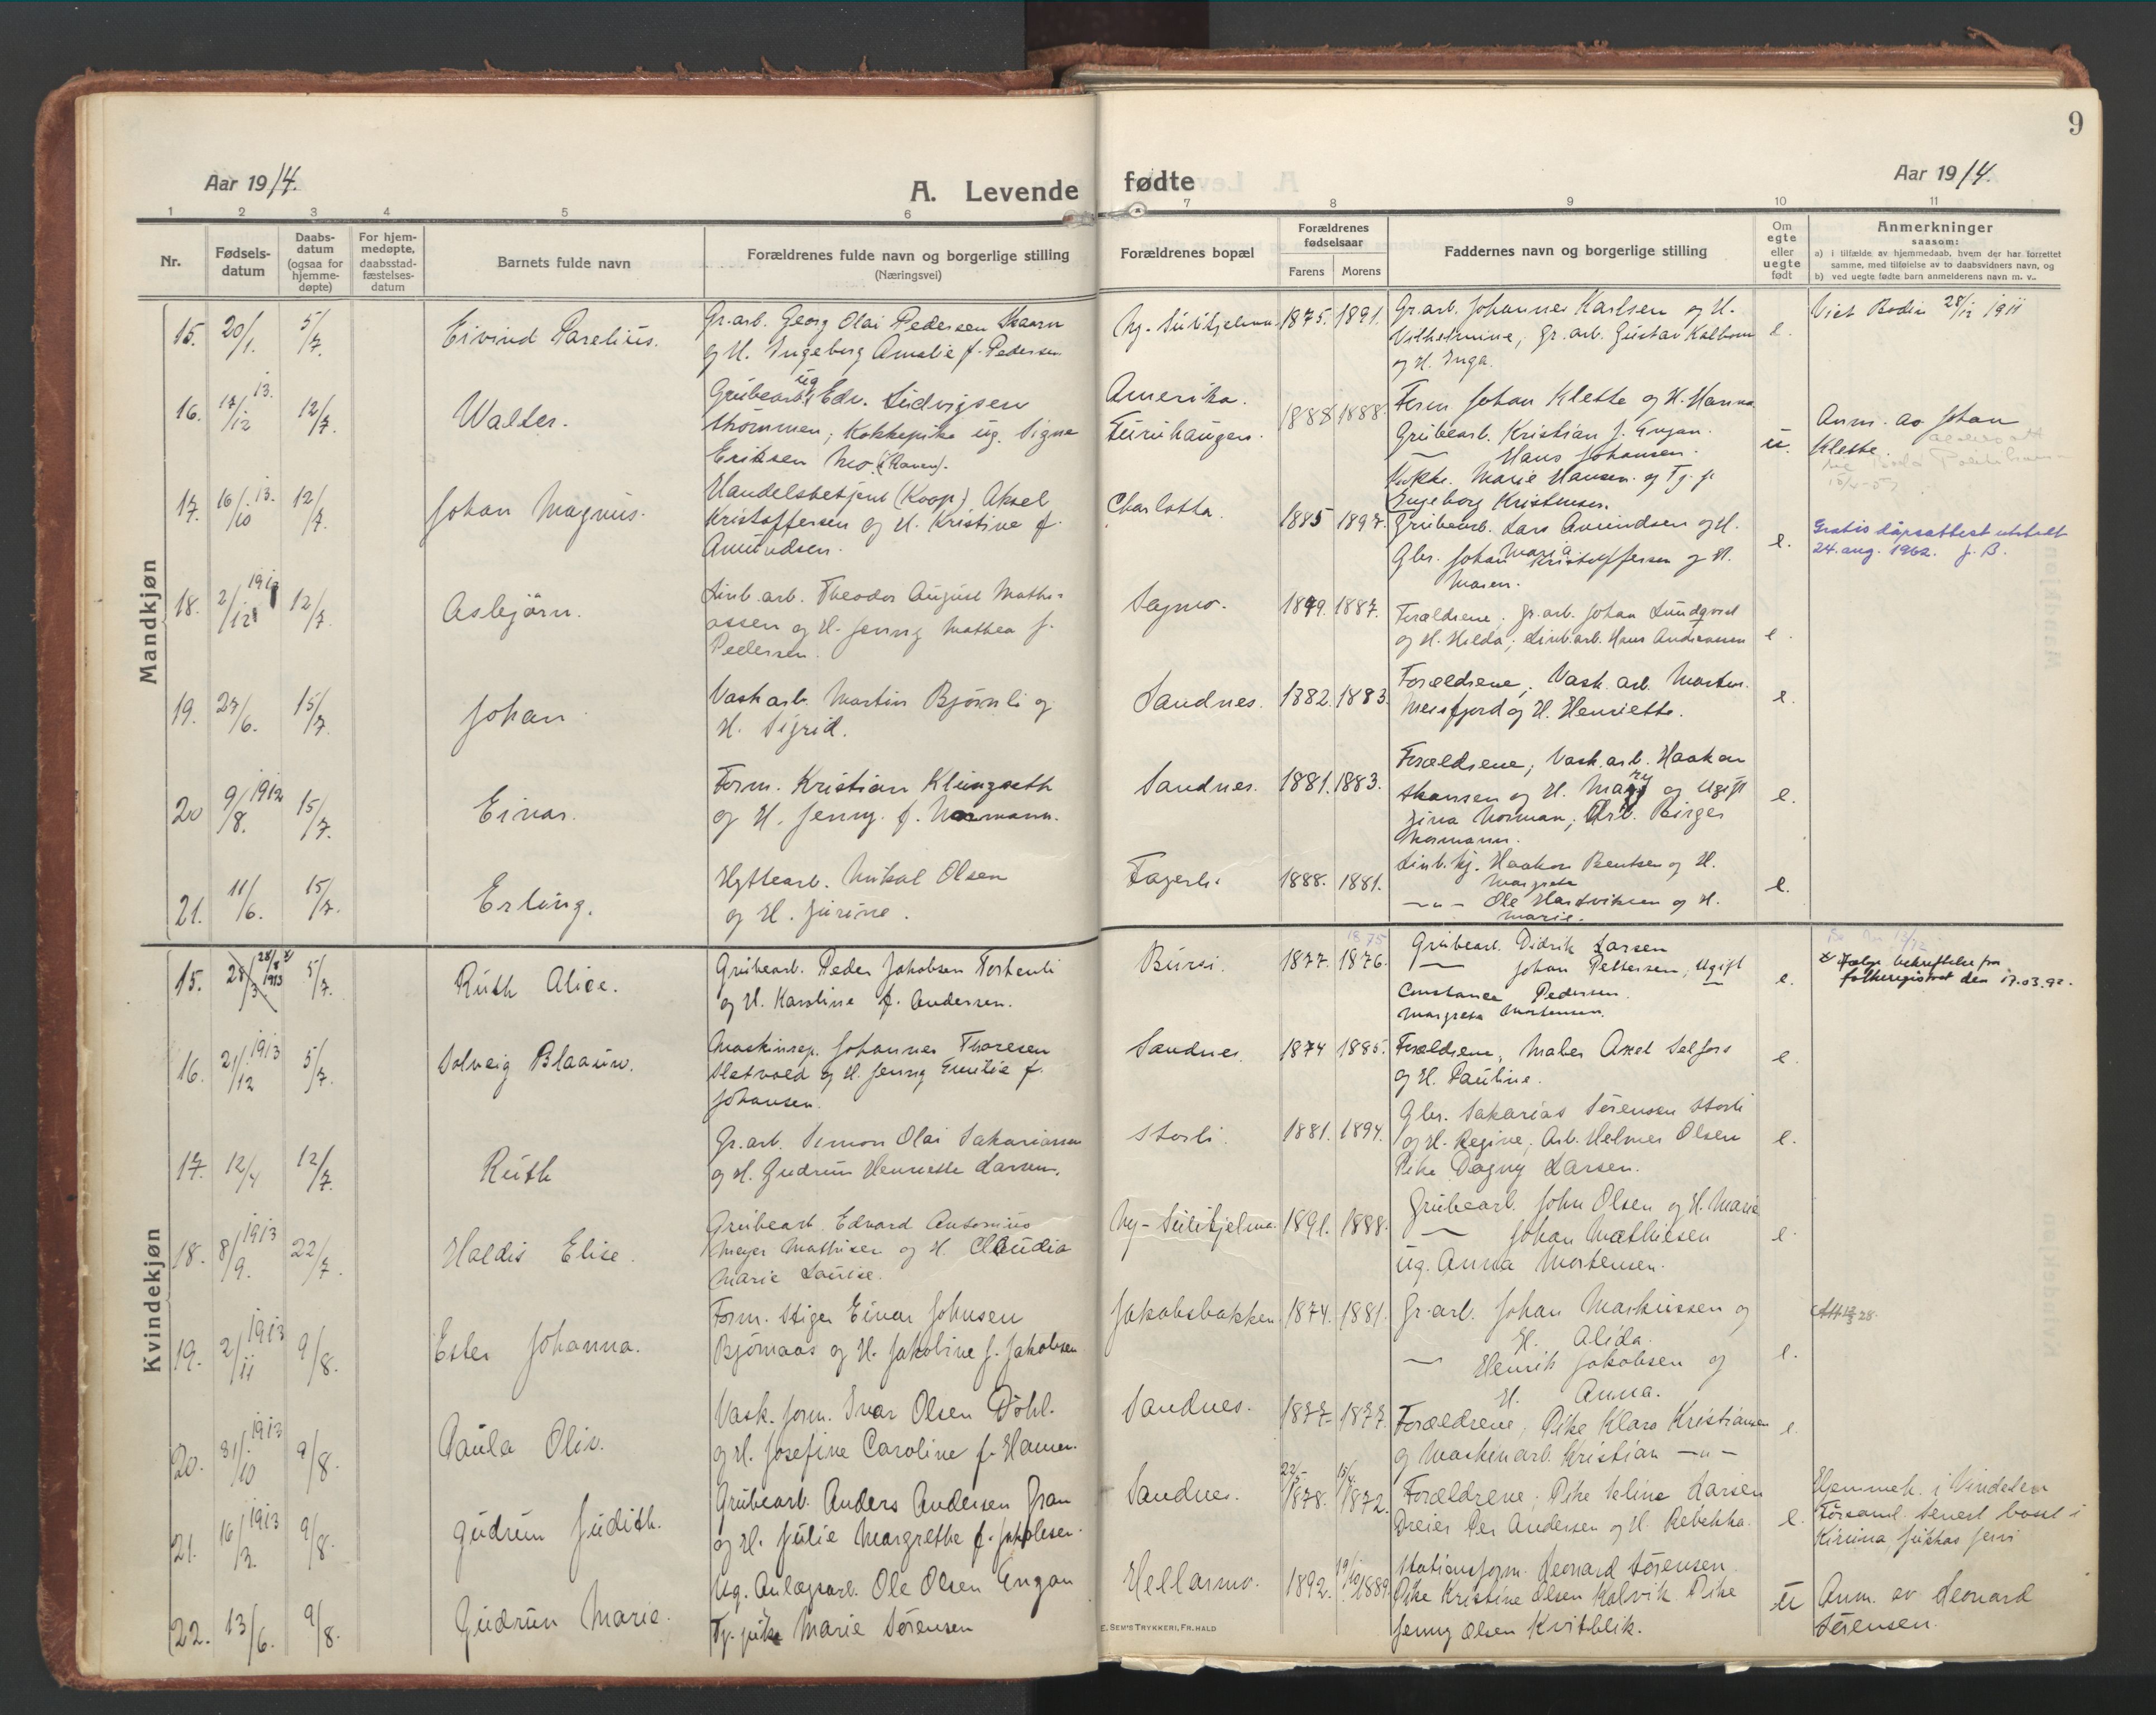 9
Aar 1914.
A. Levende fødte
Aar 1914.
1 2 3 4 5 6 7 8 9 10 11
Nr.
Fødsels-
datum
Daabs-
datum
(ogsaa for
hjemme-
døpte)
For hjem-
medøpte,
daabsstad-
fæstelses-
datum
Barnets fulde navn
Forældrenes fulde navn og borgerlige stilling
(Næringsvei)
Forældrenes bopæl
Forældrenes
fødselsaar
Farens Morens
Faddernes navn og borgerlige stilling
Om
egte
eller
uegte
født
Anmerkninger
saasom:
a) i tilfælde av hjemmedaab, hvem der har forrettet
samme, med tilføielse av to daabsvidners navn, og
b) ved uegte fødte barn anmelderens navn m. v..
Mandkjøn
15. 20/1. 5/7. Eivind Parelius.
Gr.arb. Georg Olai Pedersen Skaarn
og H. Ingeborg Amalie f. Pedersen
Ny-Sulitjelma 1875. 1891.
Gr.arb. Johannes Karlsen og H.
Vilhelmine, Gr.arb. Gustav Kalbom
og H. Inga.
e.
Viet Bodin 28/12 1911
16. 17/12 13. 12/7. Walter.
Grubearb. ug Edv. Ludvigsen
Strømmen; Kokkepike ug. Signe
Eriksen Mo (Ranen).
Amerika.
Furuhaugen.
1888 1888.
Form Johan Klette og H. Hanna
Grubearb. Kristian J. Engan.
— Hans Johansen.
Kokke. Marie Hansen og Tj. p.
Ingeborg Kristensen.
u.
Anm. av Johan
Klette.
17. 16/10 13. 12/7. Johan Magnus.
Handelsbetjent (Koop.) Aksel
Kristoffersen og H. Kristine f.
Amundsen.
Charlotta. 1885 1897.
Grubearb. Lars Amundsen og H.
Maria
Gbr. Johan Kristoffersen og H.
Maren.
e.
Gratis dåpsattest utstedt
24. aug. 1962. J. B.
18. 2/12 1913 12/7. Asbjørn.
Linb.arb. Theodor August Mathi-
assen og H. Jenny Mathea f.
Pedersen.
Sagmo. 1879. 1887.
Forældrene, gr.arb. Johan Lundqvist
og H. Hilda; Linb.arb. Hans Andreassen
e.
19. 27/6. 15/7. Johan
Vaskarb. Martin Bjørnli og
H. Sigrid.
Sandnes. 1882. 1883.
Forældrene, Vask.arb. Morten
Meisfjord og H. Henriette.
e.
20 9/8. 1912 15/7. Einar.
Form. Kristian Klungseth
og H. Jenny f. Normann.
Sandnes. 1881. 1883.
Forældrene, Vask.arb. Haakon
Hansen og H. Mary og Ugift
Jina Norman; Arb. Birger
Normann.
e.
21. 11/6. 15/7. Erling.
Hyttearb. Nikol Olsen
og H. Jurine.
Fagerli 1888. 1881.
Linb.kj. Haakon Bentsen og H.
Margreta
—"— Ole Hartviksen og H.
Marie.
e.
Kvindekjøn
15. 28/3 28/8 1913 x/ 5/7. Ruth Alice.
Grubearb. Peder Jakobsen Tortenli
og H. Karoline f. Andersen.
Bursi. 1877. 1876. 1875
Grubearb. Didrik Larsen
— Johan Pettersen, Ugift
Constance Pedersen.
Margreta Mortensen.
e.
x/ Ifølge bekreftelse fra
folkeregistret den 17.03.92.
16. 21/12 1913 5/7. Solveig Blaauw.
Maskinrep. Johannes Thoresen
Sletvold og H. Jenny Emilie f.
Johansen.
Sandnes. 1874 1885.
Forældrene, Maler Axel Selfors
og H. Pauline.
e.
17. 12/4 12/7. Ruth
Gr.arb. Simon Olai Sakariassen
og H. Gudrun Henriette Larsen.
Storli. 1881. 1894.
Gbr. Sakarias Sørensen Storli
og H. Regine, Arb. Helmer Olsen
Pike Dagny Larsen.
e.
18. 8/9. 1913 22/7. Haldis Elise.
Grubearb. Edvard Antonius
Meyer Mathisen og H. Claudia
Marie Louise.
Ny-Sulitjelma. 1891. 1888.
Grubearb. John Olsen og H. Marie
— Johan Mathiesen
Ug. Anna Mortensen.
e.
19. 2/11 1913 9/8. Ester Johanna.
Form. Stiger Einar Johnsen
Bjørnaas og H. Jakobine f. Jakobsen
Jakobsbakken. 1874. 1881.
Gr.arb. Johan Markussen og
H. Alida.
— Henrik Jakobsen og
H. Anna.
e.
20. 31/10 1913 9/8. Paula Oliv.
Vask.form. Ivar Olsen Döhl.
og H. Josefine Caroline f. Hansen.
Sandnes. 1877 1877.
Forældrene, Pike Klara Kristiansen
og Maskinarb. Kristian —"—
e.
21. 16/3. 1913 9/8. Gudrun Judith.
Grubearb. Anders Andersen Gran
og H. Julie Margrethe f. Jakobsen.
Sandnes. 22/5 1878. 15/4. 1872.
Forældrene, Pike Seline Larsen
Dreier Per Andersen og H. Rebekka.
e.
Hjemmeh. i Vindelen
Församl. Senest bosat i
Kiruna Jukkas Jervi
22. 13/6. 9/8. Gudrun Marie.
Ug. Anlægsarb. Ole Olsen Engan
Tj. pike Marie Sørensen
Hellarmo. 1892. 19/10 1889
Stationsform. Leonard Sørensen
Pike Kristine Olsen Kalvik Pike
Jenny Olsen Kvitblik.
u
Anm. av Leonard
Sørensen.
E. SEM'S TRYKKERI, FR.HALD